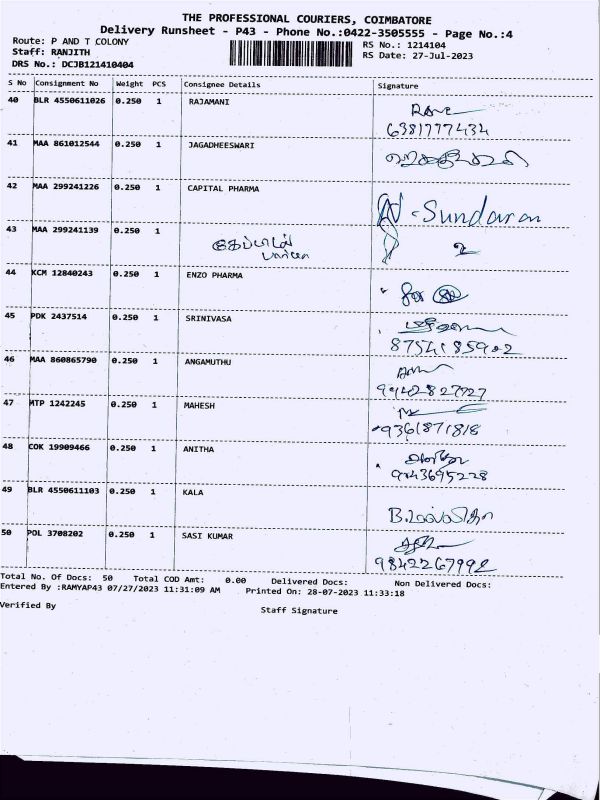 THE PROFESSIONAL COURIERS, COIMBATORE
Delivery Runsheet - P43 - Phone No.:0422-3505555 - Page No.:4
Route: P AND T COLONY
RS No.: 1214104
Staff: RANJITH
RS Date: 27-Jul-2023
DRS No.: DCJB121410404
S No Consignment No Weight PCS Consignee Details Signature
40 BLR 4550611026 0.250 1 RAJAMANI
6381777434
41 MAA 861012544 0.250 1 JAGADHEESWARI
42 MAA 299241226 0.250 1 CAPITAL PHARMA
Sundaran
43 MAA 299241139 0.250 1
44 KCM 12840243 0.250 1 ENZO PHARMA
for
45 PDK 2437514 0.250 1 SRINIVASA
8754185902
46 MAA 860865790 0.250 1 ANGAMUTHU
9942827927
47 MTP 1242245 0.250 1 MAHESH
9361871818
48 COK 19909466 0.250 1 ANITHA
9043695228
49 BLR 4550611103 0.250 1 KALA
50 POL 3708202 0.250 1 SASI KUMAR
9842267992
Total No. Of Docs: 50 Total COD Amt: 0.00 Delivered Docs: Non Delivered Docs:
Entered By :RAMYAP43 07/27/2023 11:31:09 AM Printed On: 28-07-2023 11:33:18
Verified By
Staff Signature